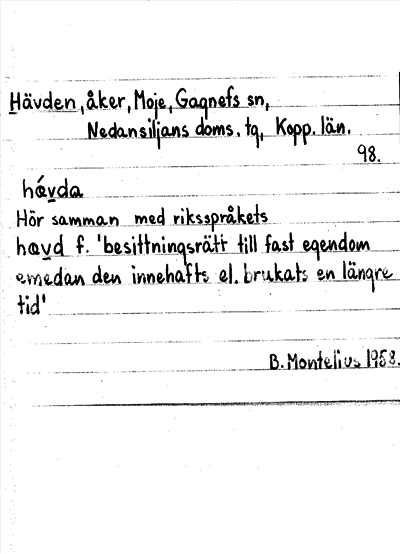 Hävden, åker, Moje, Gagnefs sn,
Nedansiljans doms. tg, Kopp. län.
98.
hǽvda
Hör samman med riksspråkets
hævd f. 'besittningsrätt till fast egendom
emedan den innehafts el. brukats en längre
tid'
B. Montelius 1958.